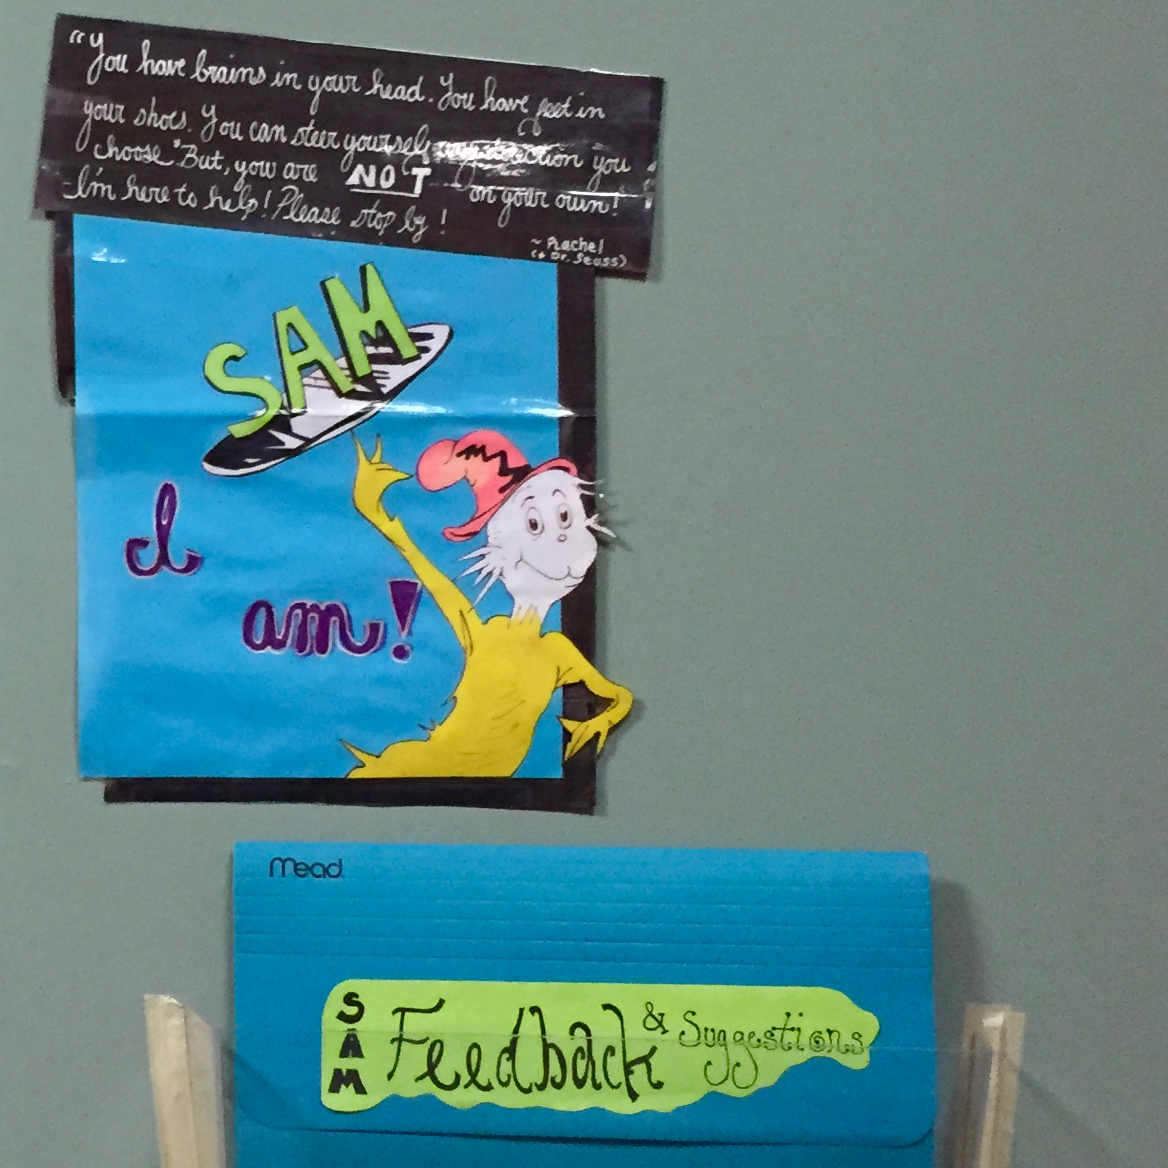 "You have brains in your head. You have feet in
your shoes. You can steer yourself any direction you
choose" But, you are NOT on your own!
I'm here to help! Please stop by!
~ Rachel
(+ Dr. Seuss)
SAM
I
am!
Mead
SAM Feedback & Suggestions